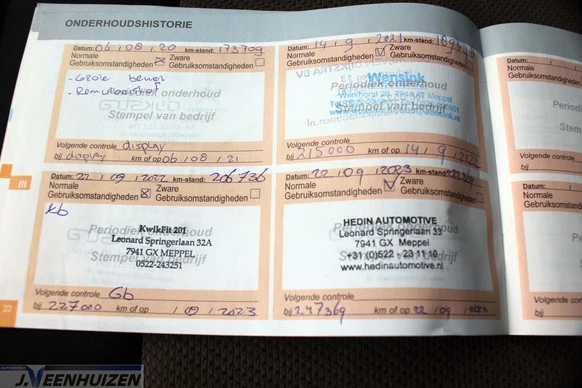 ONDERHOUDSHISTORIE
Datum: 06 / 08 / 20 km-stand: 173709
Normale Gebruiksomstandigheden ☒ Zware Gebruiksomstandigheden ☐
- Grote beurt
- Remvloeistof
Periodiek onderhoud
Stempel van bedrijf
Volgende controle display
bij display km of op 06 / 08 / 21
Datum: 14 / 9 / 2021 km-stand:
Normale Gebruiksomstandigheden ☑ Zware Gebruiksomstandigheden ☐
Wensink
Periodiek onderhoud
Stempel van bedrijf
Volgende controle
bij 215000 km of op 14 / 9 /
III
Datum: 22 / 09 / 2022 km-stand: 206736
Normale Gebruiksomstandigheden ☒ Zware Gebruiksomstandigheden ☐
kb
Periodiek onderhoud
KwikFit 201
Leonard Springerlaan 32A
7941 GX MEPPEL
0522-243251
Stempel van bedrijf
Volgende controle Gb
bij 227000 km of op / 09 / 2023
Datum: 22 / 09 / 2023 km-stand:
Normale Gebruiksomstandigheden ☑ Zware Gebruiksomstandigheden ☐
HEDIN AUTOMOTIVE
Leonard Springerlaan 33
7941 GX Meppel
+31 (0)522 - 23 11 10
www.hedinautomotive.nl
Volgende controle
bij 247369 km of op 22 / 09 /
22
Datum:
Normale
Gebruiksom
Volgende
bij
Datum:
Normale
Gebruiksom
Volgende
bij
J. VEENHUIZEN